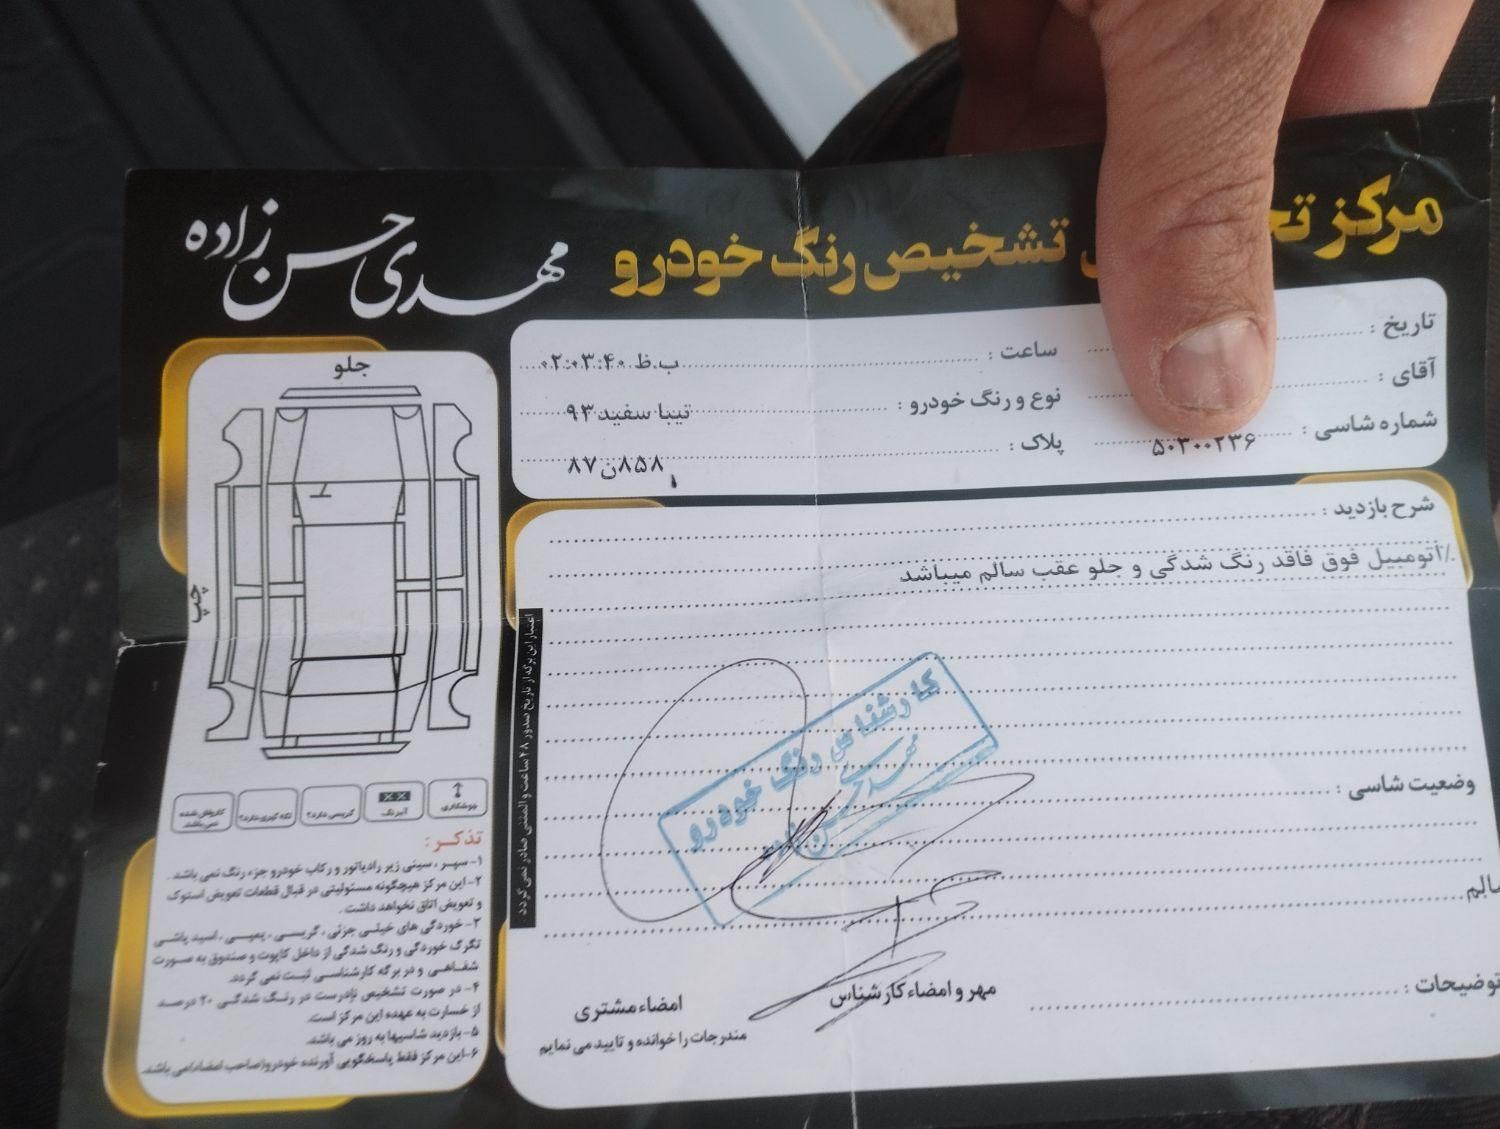 مرکز
تشخیص رنگ خودرو
مهدی حسن زاده
تاریخ :
ساعت :
ب.ظ ۰۲:۰۳:۴۰
آقای :
نوع و رنگ خودرو :
تیبا سفید ۹۳
شماره شاسی :
۵۰۳۰۰۲۳۶
پلاک :
۸۵۸ن۸۷
شرح بازدید :
٪اتومبیل فوق فاقد رنگ شدگی و جلو عقب سالم میباشد
کارشناس رنگ خودرو
مهدی حسن زاده
وضعیت شاسی :
توضیحات :
مهر و امضاء کارشناس
امضاء مشتری
مندرجات را خوانده و تایید می نمایم
اعتبار این برگه از تاریخ صدور ۴۸ ساعت و المثنی صادر نمی گردد
جلو
چپ
جوشکاری
آبرنگ
گریسی دارد؟
لکه گیری دارد؟
کارواش شده نمی باشد
تذکر :
۱- سپر ، سینی زیر رادیاتور و رکاب خودرو جزء رنگ نمی باشد.
۲- این مرکز هیچگونه مسئولیتی در قبال قطعات تعویض استوک
و تعویض اتاق نخواهد داشت.
۳- خوردگی های خیلی جزئی ، گریسی ، پمپی ، اسید پاشی
تگرگ خوردگی و رنگ شدگی از داخل کاپوت و صندوق به صورت
شفاهی و در برگه کارشناسی ثبت نمی گردد.
۴- در صورت تشخیص نادرست در رنگ شدگی ۲۰ درصد
از خسارت به عهده این مرکز است.
۵- بازدید شاسیها به روز می باشد.
۶- این مرکز فقط پاسخگویی آورنده خودرو(صاحب امضاء)می باشد.